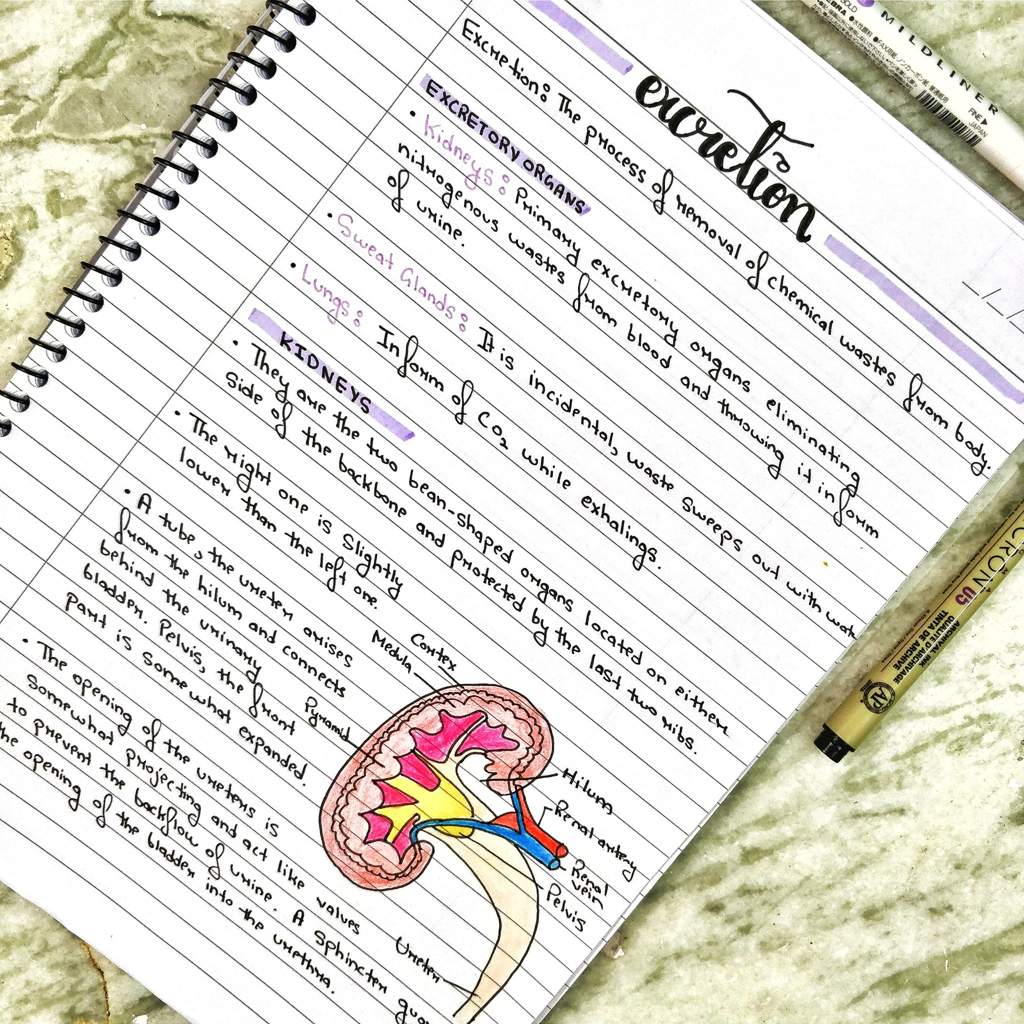 excretion
Excretion: The process of removal of chemical wastes from body.
EXCRETORY ORGANS
• Kidneys: Primary excretory organs eliminating
nitrogenous wastes from blood and throwing it in form
of urine.
• Sweat Glands: It is incidental, waste sweeps out with
• Lungs: In form of CO2 while exhalings.
KIDNEYS
• They are the two bean-shaped organs located on either
side of the backbone and protected by the last two ribs.
• The right one is slightly
lower than the left one.
• A tube, the ureter arises
from the hilum and connects
behind the urinary
bladder. Pelvis, the front
part is somewhat expanded.
• The opening of the ureters is
somewhat projecting and act like values
to prevent the backflow of urine. A sphincter
the opening of the bladder into the urethra.
Cortex
Medula
Pyramid
Hilum
Renal artery
Renal
vein
Pelvis
Ureter
MILDLINER
FINE
JAPAN
CRON 05
ARCHIVAL INK
QUALITE D'ARCHIVAGE
TINTA DE ARCHIVE
AP